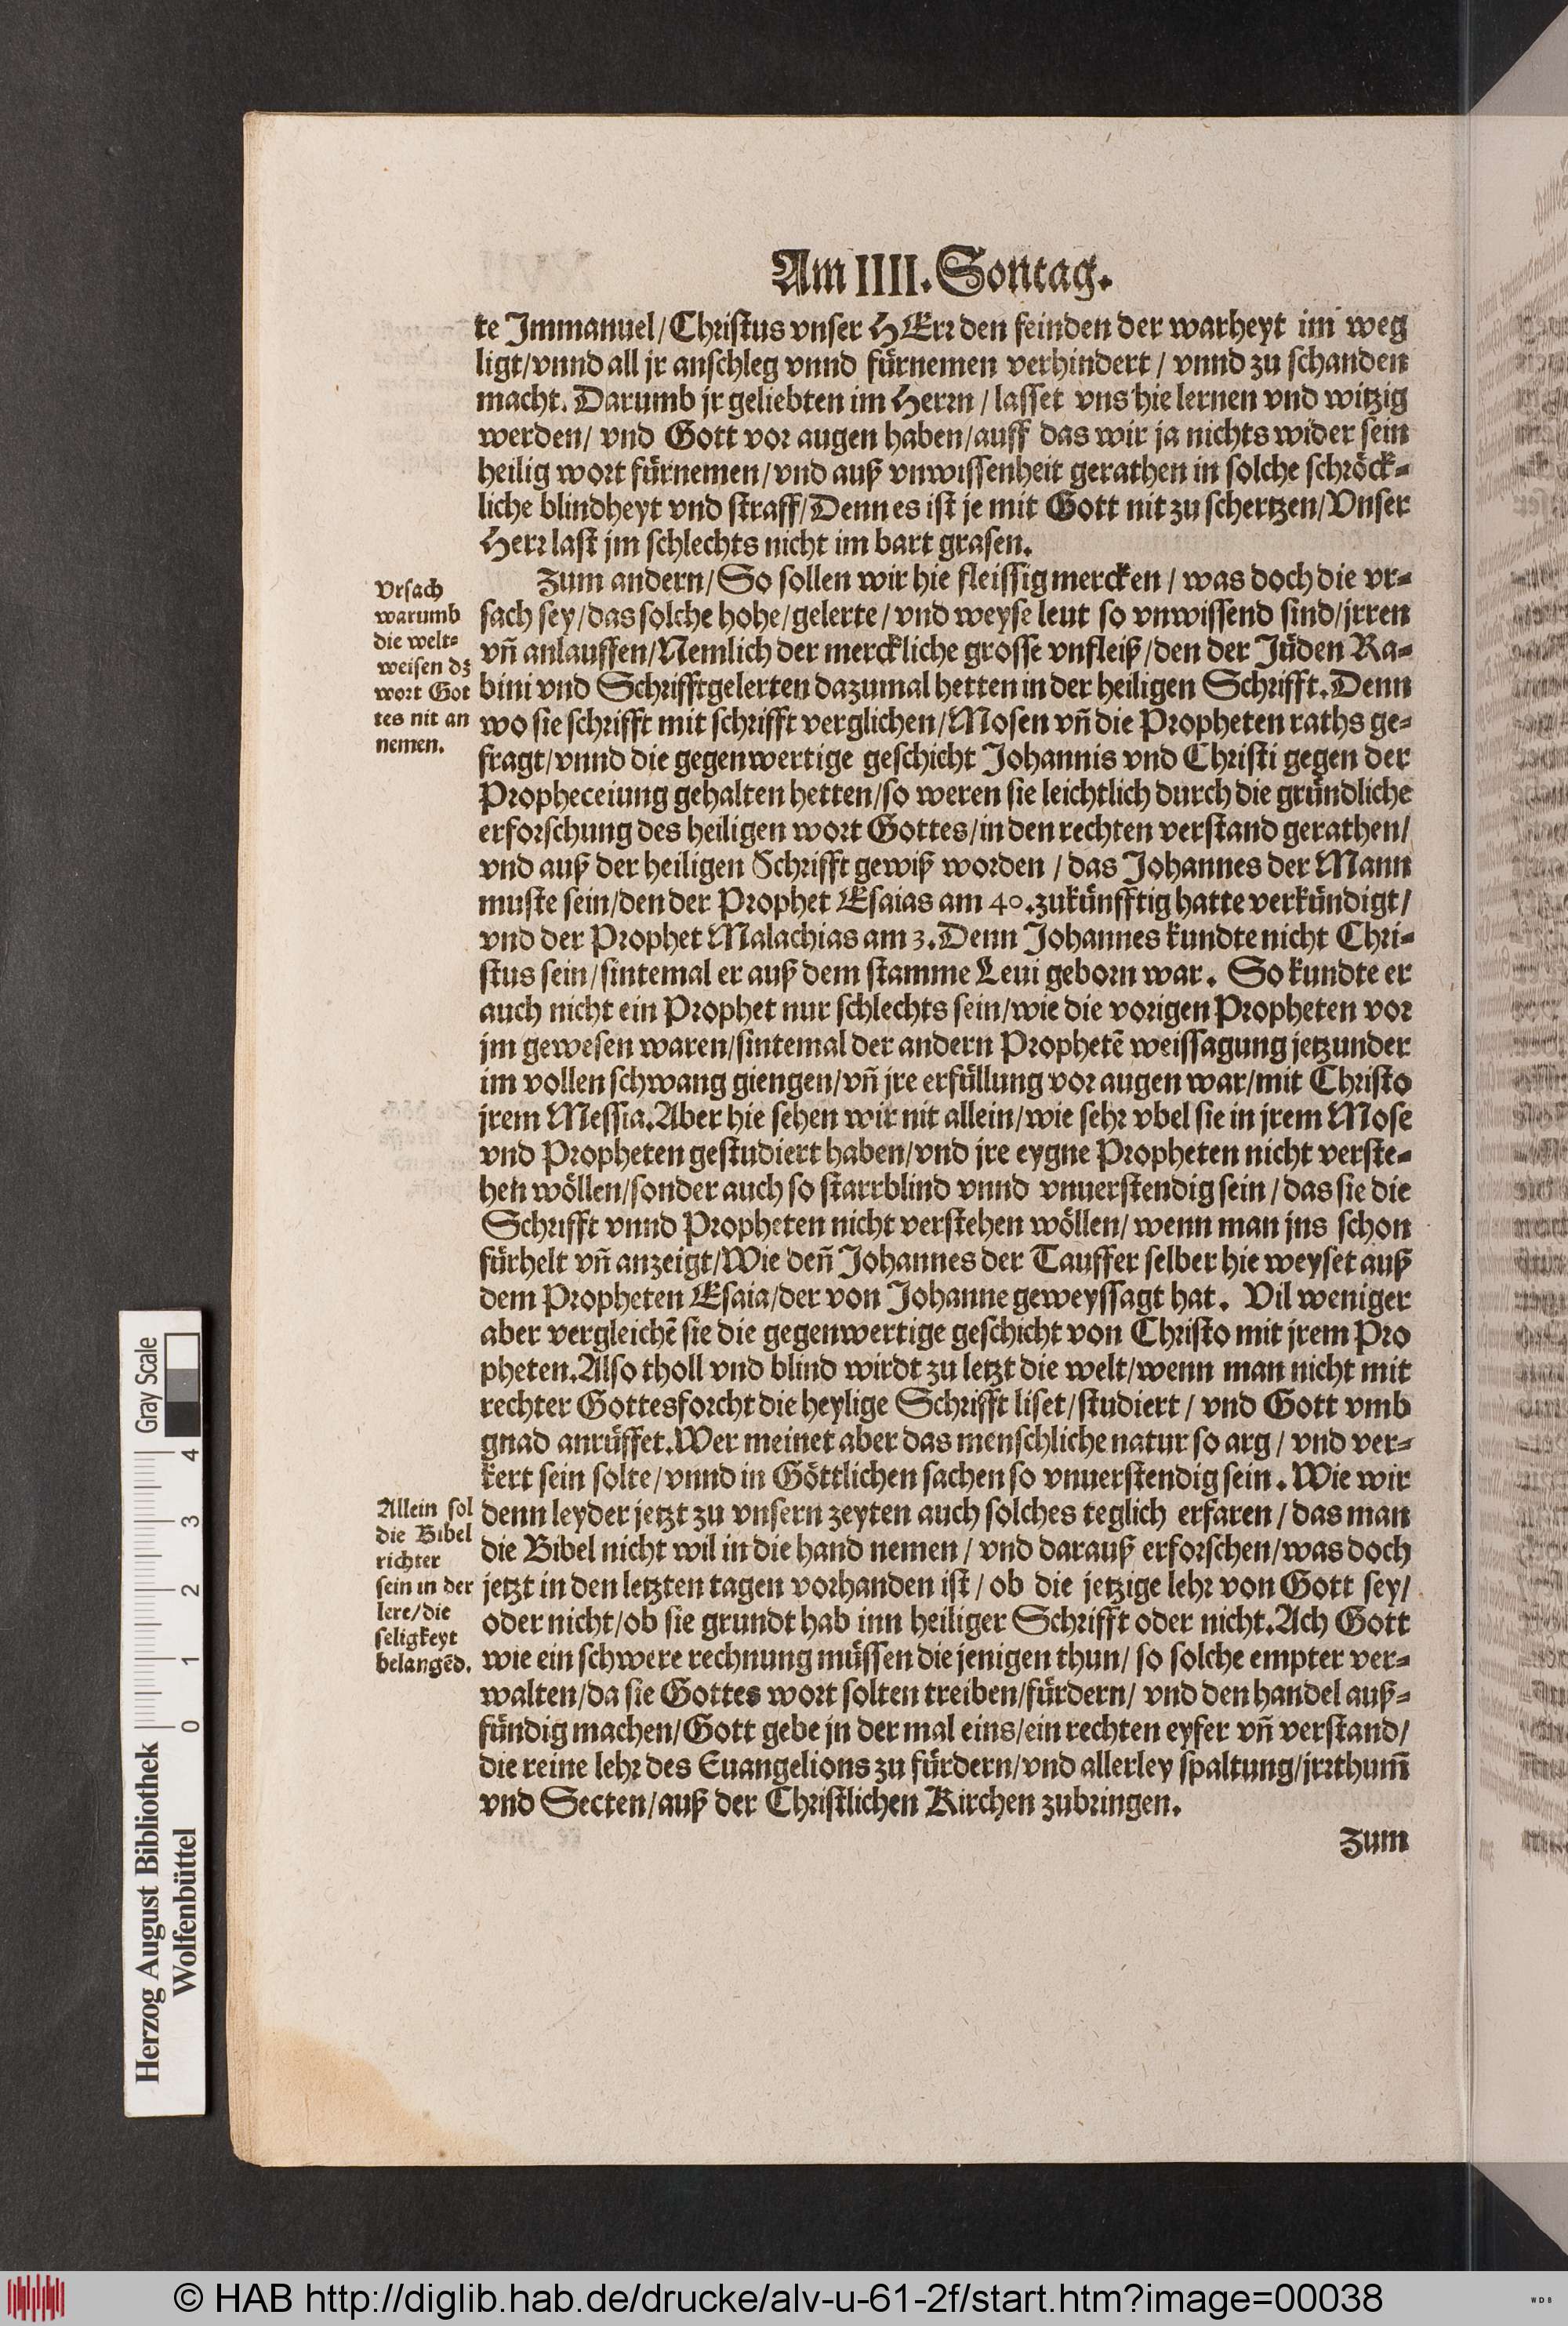 Am IIII. Sontag.
te Immanuel/Christus vnser HErr den feinden der warheyt im weg
ligt/vnnd all jr anschleg vnnd fürnemen verhindert / vnnd zu schanden
macht. Darumb jr geliebten im Herrn / lasset vns hie lernen vnd witzig
werden/ vnd Gott vor augen haben/auff das wir ja nichts wider sein
heilig wort fürnemen/vnd auß vnwissenheit gerathen in solche schröck-
liche blindheyt vnd straff/Denn es ist je mit Gott nit zu schertzen/Vnser
Herr last jm schlechts nicht im bart grasen.
Vrsach
warumb
die welt-
weisen dz
wort Got
tes nit an
nemen.
Zum andern/So sollen wir hie fleissig mercken / was doch die vr-
sach sey/das solche hohe/gelerte/ vnd weyse leut so vnwissend sind/jrren
vn̄ anlauffen/Nemlich der merckliche grosse vnfleiß/den der Jüden Ra-
bini vnd Schrifftgelerten dazumal hetten in der heiligen Schrifft. Denn
wo sie schrifft mit schrifft verglichen/Mosen vn̄ die Propheten raths ge-
fragt/vnnd die gegenwertige geschicht Johannis vnd Christi gegen der
Propheceiung gehalten hetten/so weren sie leichtlich durch die gründliche
erforschung des heiligen wort Gottes/in den rechten verstand gerathen/
vnd auß der heiligen Schrifft gewiß worden / das Johannes der Mann
muste sein/den der Prophet Esaias am 40.zukünfftig hatte verkündigt/
vnd der Prophet Malachias am 3. Denn Johannes kundte nicht Chri-
stus sein/sintemal er auß dem stamme Leui geborn war. So kundte er
auch nicht ein Prophet nur schlechts sein/wie die vorigen Propheten vor
jm gewesen waren/sintemal der andern Prophetē weissagung jetzunder
im vollen schwang giengen/vn̄ jre erfüllung vor augen war/mit Christo
jrem Messia. Aber hie sehen wir nit allein/wie sehr vbel sie in jrem Mose
vnd Propheten gestudiert haben/vnd jre eygne Propheten nicht verste-
hen wöllen/sonder auch so starrblind vnnd vnuerstendig sein / das sie die
Schrifft vnnd Propheten nicht verstehen wöllen/ wenn man jns schon
fürhelt vn̄ anzeigt/Wie den̄ Johannes der Tauffer selber hie weyset auß
dem Propheten Esaia/der von Johanne geweyssagt hat. Vil weniger
aber vergleichē sie die gegenwertige geschicht von Christo mit jrem Pro
pheten. Also tholl vnd blind wirdt zu letzt die welt/wenn man nicht mit
rechter Gottesforcht die heylige Schrifft liset/studiert / vnd Gott vmb
gnad anrüffet. Wer meinet aber das menschliche natur so arg / vnd ver-
kert sein solte/vnnd in Göttlichen sachen so vnuerstendig sein. Wie wir
Allein sol
die Bibel
richter
sein in der
lere/die
seligkeyt
belangēd.
denn leyder jetzt zu vnsern zeyten auch solches teglich erfaren / das man
die Bibel nicht wil in die hand nemen / vnd darauß erforschen/was doch
jetzt in den letzten tagen vorhanden ist / ob die jetzige lehr von Gott sey/
oder nicht/ob sie grundt hab inn heiliger Schrifft oder nicht. Ach Gott
wie ein schwere rechnung müssen die jenigen thun/ so solche empter ver-
walten/da sie Gottes wort solten treiben/fürdern/ vnd den handel auß-
fündig machen/Gott gebe jn der mal eins/ein rechten eyfer vn̄ verstand/
die reine lehr des Euangelions zu fürdern/vnd allerley spaltung/jrrthum̄
vnd Secten/auß der Christlichen Kirchen zubringen.
Zum
Herzog August Bibliothek
Wolfenbüttel
0 1 2 3 4
Gray Scale
© HAB http://diglib.hab.de/drucke/alv-u-61-2f/start.htm?image=00038
WDB